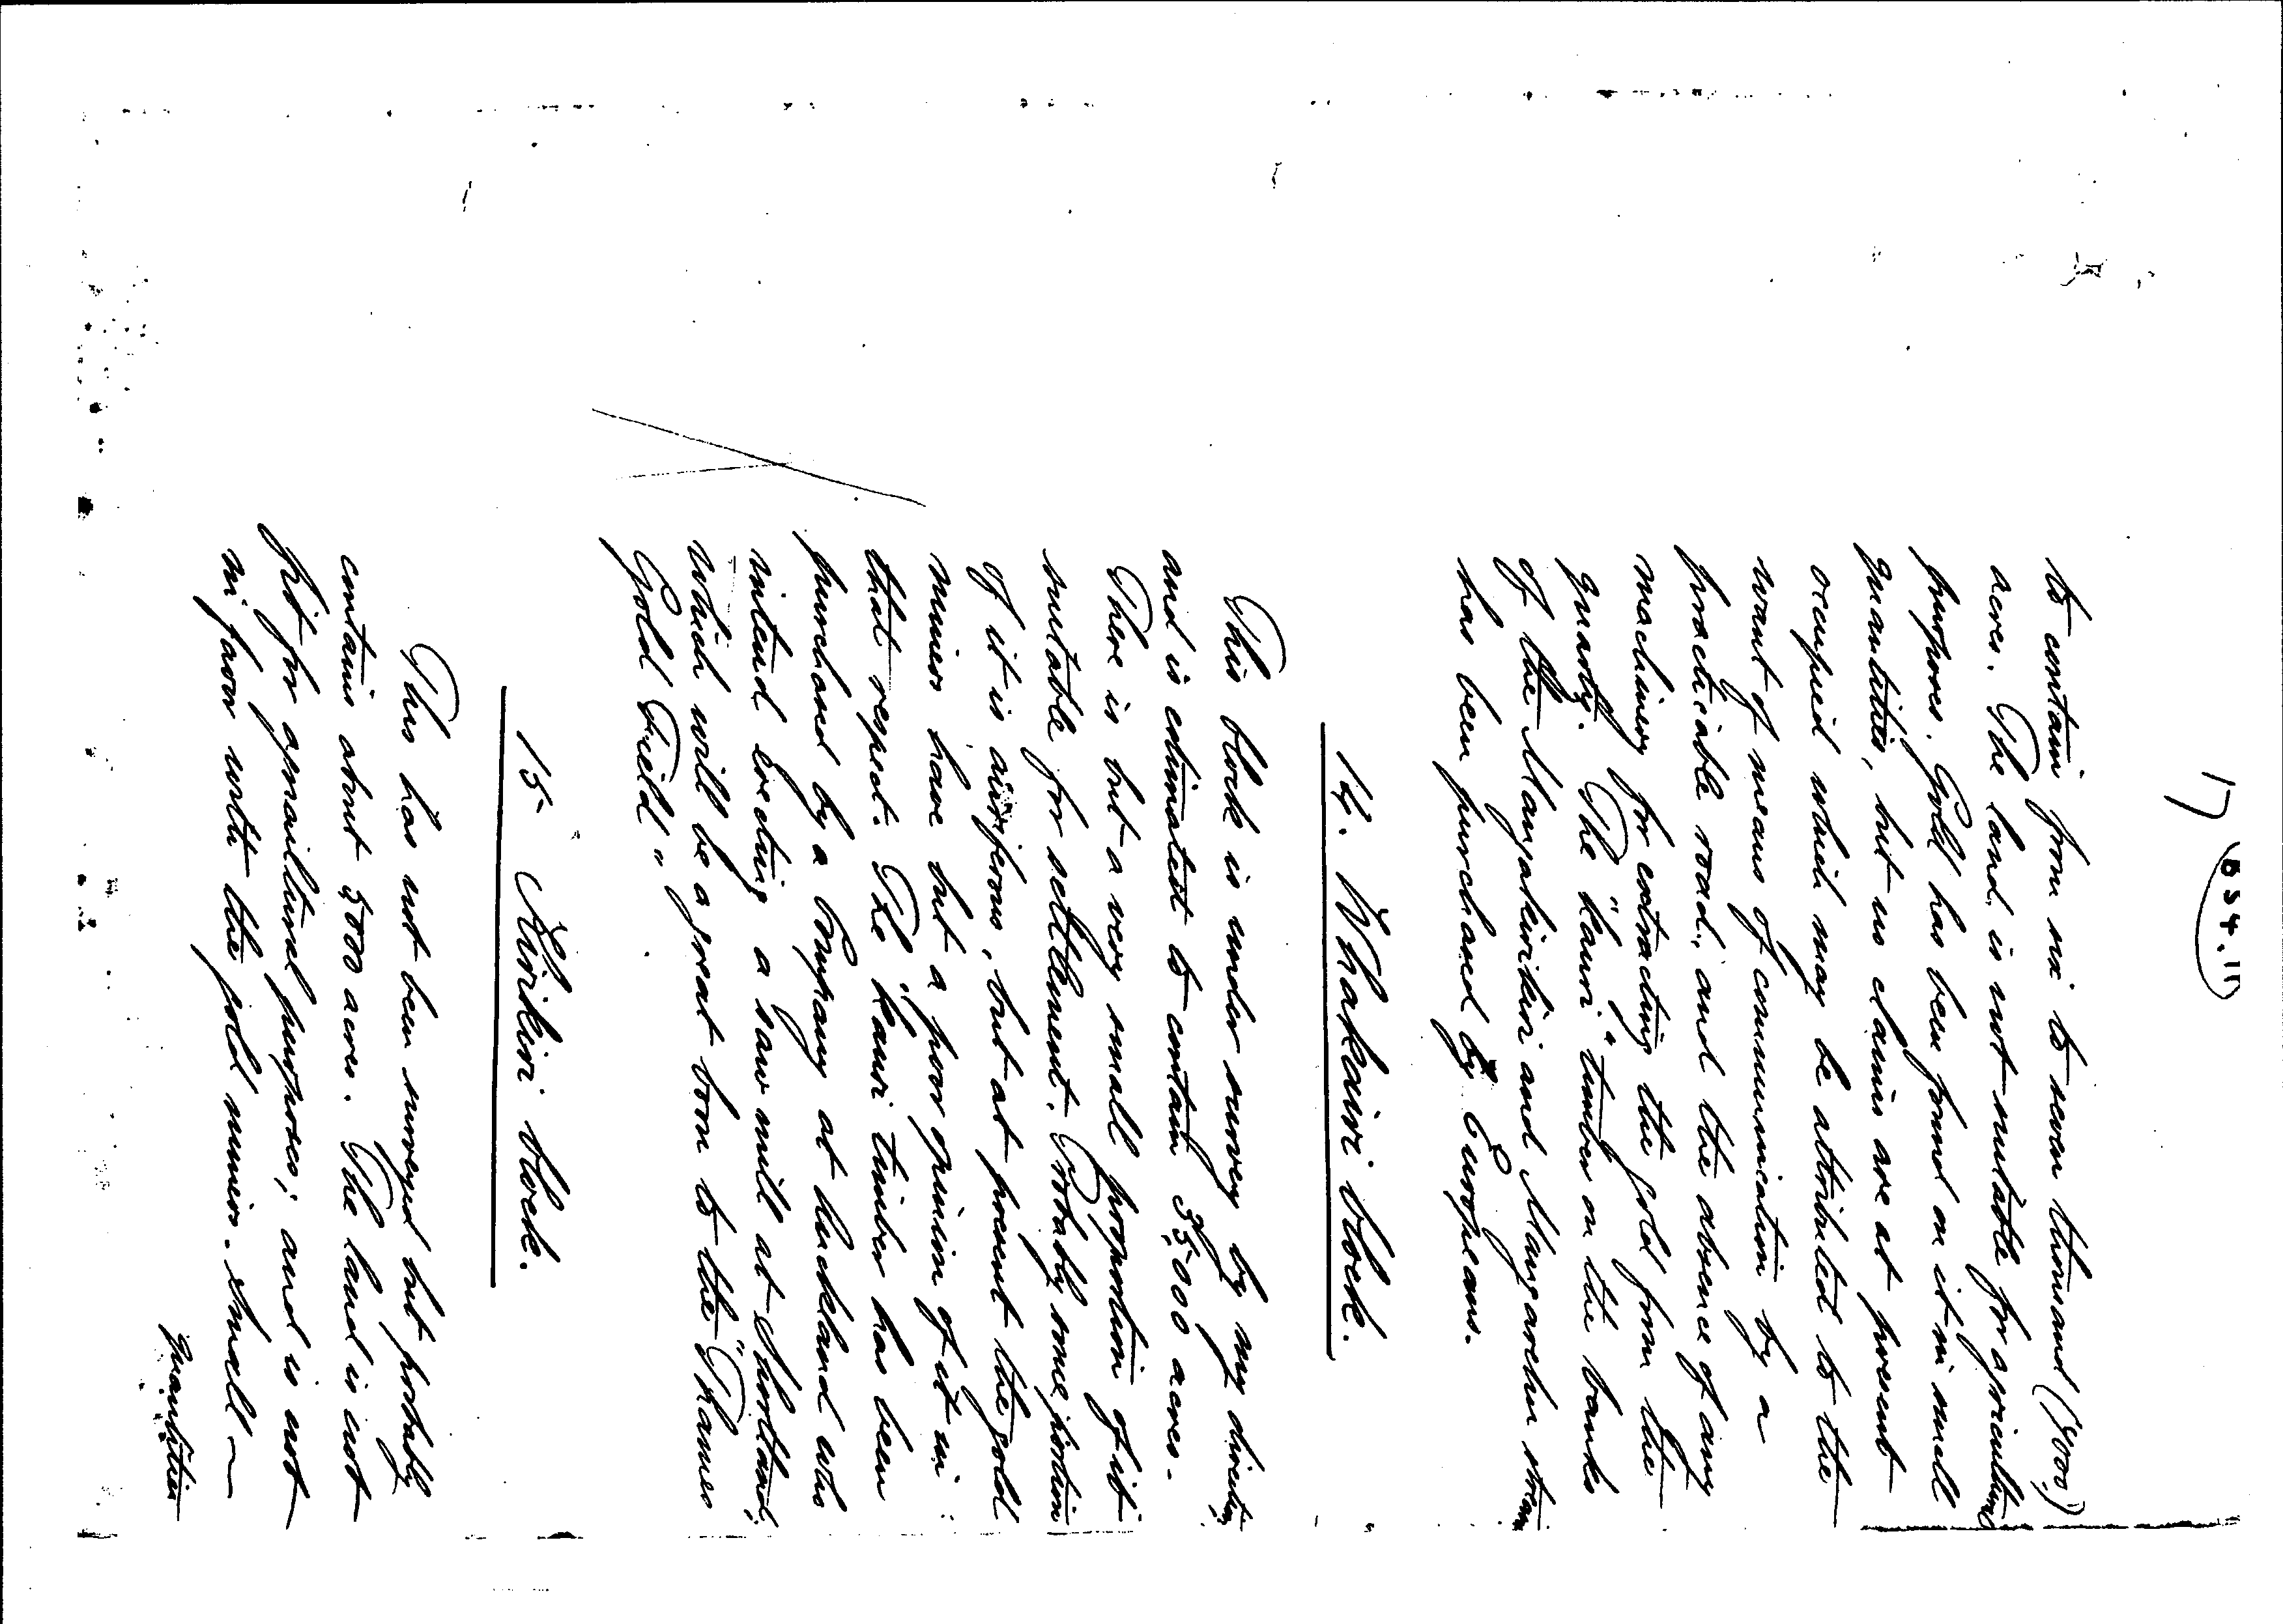 17
B 34. 11
to contain from six to seven thousand (7000)
acres. The land is not suitable for agricultural
purposes. Gold has been found on it in small
quantities, but no claims are at present
occupied which may be attributed to the
want of means of communication by a
practicable road, and the absence of any
machinery for extracting the gold from the
quartz. The "kauri" timber on the banks
of the Mangakirikiri and Mangarehu stream
has been purchased by Europeans.
14. Whakairi block.
This block is under survey by my direction
and is estimated to contain 35,000 acres.
There is but a very small proportion of it
suitable for settlement. Probably some portion
of it is auriferous, but at present the gold
miners have but a poor opinion of it in
that respect. The "kauri timber has been
purchased by a Company at Auckland who
intend erecting a saw mill at Shortland,
which will be a great boon to the "Thames
Gold Field"
15 Kirikiri block.
This has not been surveyed but probably
contains about 5000 acres. The land is not
fit for agricultural purposes; and is not
in favor with the gold miners. Small
quantities